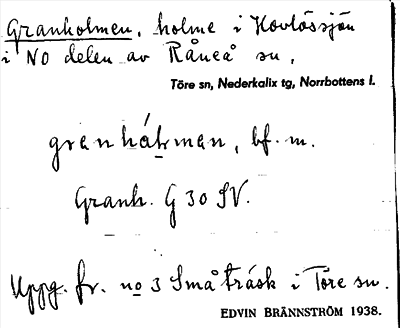 Granholmen, holme i Hovlössjön
i NO delen av Råneå sn,
Töre sn, Nederkalix tg, Norrbottens l.
granhálmen, bf. m.
Granh. G 30 SV.
Uppg. fr. no 3 Småträsk i Töre sn.
EDVIN BRÄNNSTRÖM 1938.